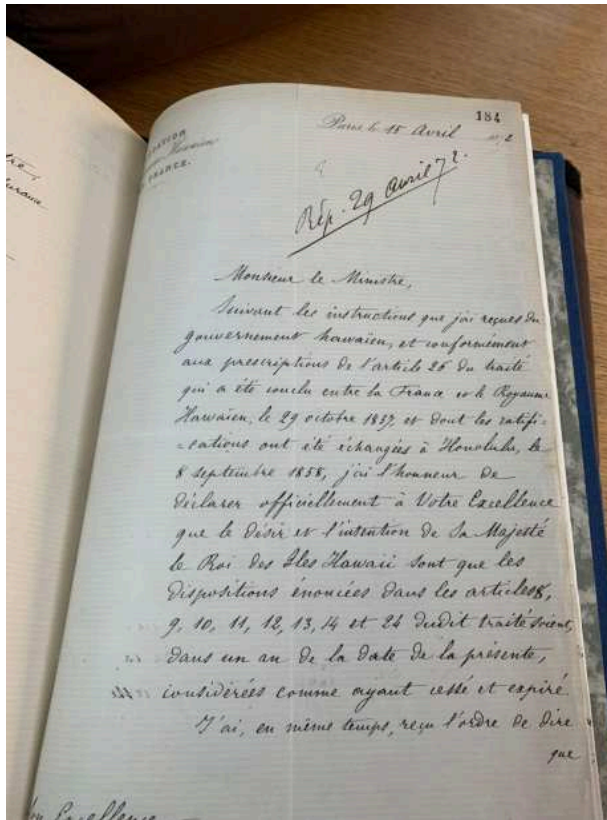 184
FRANCE.
Paris le 15 Avril
Rép. 29 avril 72.
Monsieur le Ministre,
Suivant les instructions que j'ai reçues du
gouvernement hawaïen, et conformément
aux prescriptions de l'article 26 du traité
qui a été conclu entre la France et le Royaume
Hawaïen, le 29 octobre 1857, et dont les ratifi-
-cations ont été échangées à Honolulu, le
8 septembre 1858, j'ai l'honneur de
déclarer officiellement à Votre Excellence
que le désir et l'intention de Sa Majesté
le Roi des Iles Hawaii sont que les
dispositions énoncées dans les articles 8,
9, 10, 11, 12, 13, 14 et 24 dudit traité soient,
dans un an de la date de la présente,
considérées comme ayant cessé et expiré
J'ai, en même temps, reçu l'ordre de dire
que
Excellence